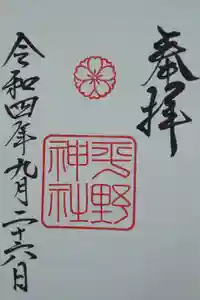 奉拝
平野
神社
令和四年九月二十六日